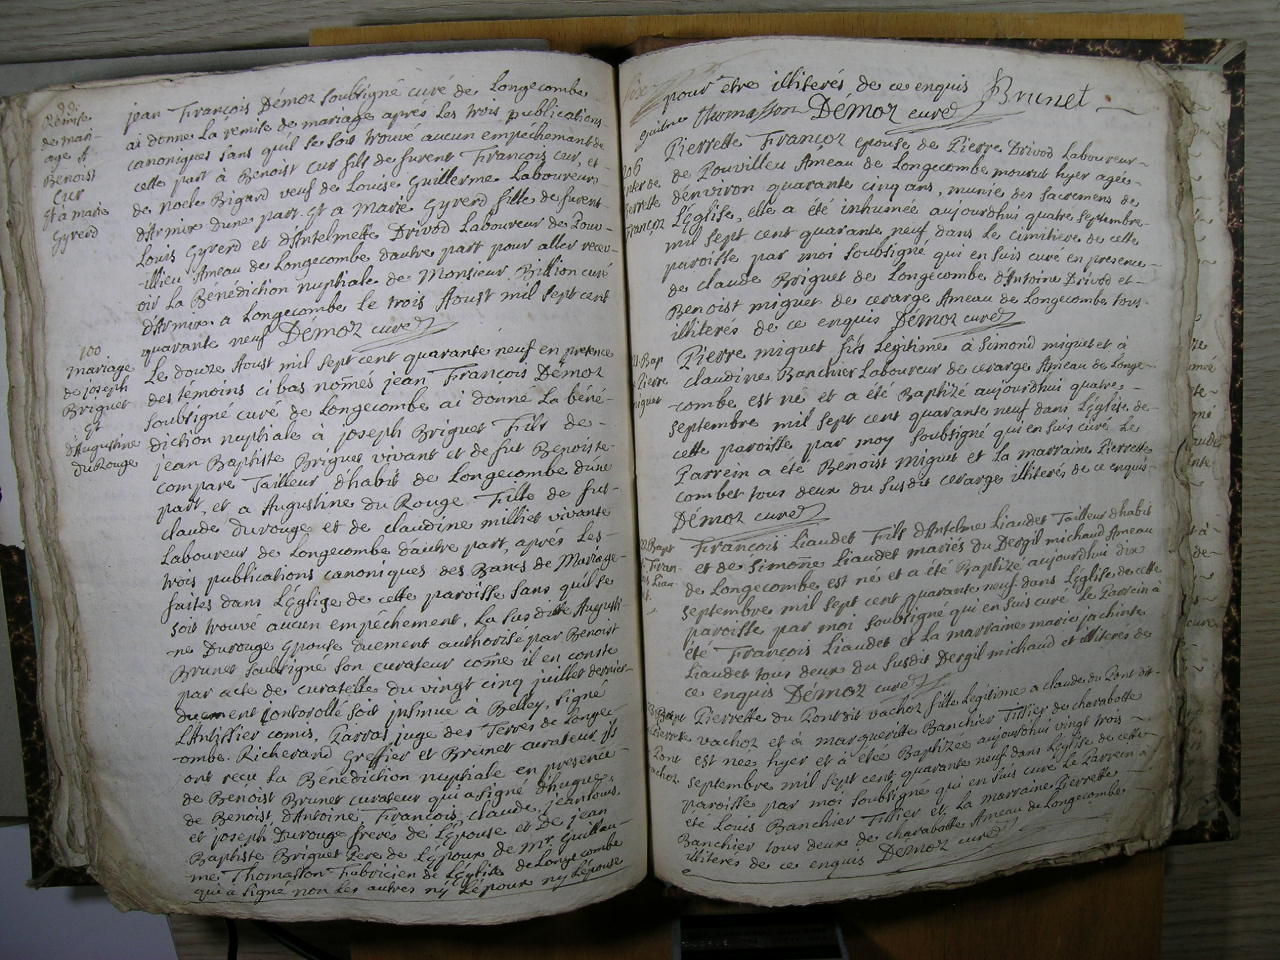 99.
Remise
de mari-
age A
Benoist
Cur
Et à marie
Gyrerd
jean François Démoz soubsigné curé de Longecombe
ai donné La remise de mariage aprés les trois publications
canoniques sans qu'il se soit trouvé aucun empechement de
cette part à Benoist Cur fils de furent François Cur, et
de noele Brigard veuf de Louise Guillerme Laboureur
d'Armix dune part. Et a Marie Gyrerd fille de furent
Louis Gyrerd et d'Antelmette Drivod Laboureur de Pouv-
illieu Ameau de Longecombe d'autre part pour aller recev-
oir La Bénédiction nuptiale de Monsieur Billion curé
d'Armix a Longecombe le trois Aoust mil sept cent
quarante neuf Démoz curé
100
mariage
de joseph
Briguet
Et
d'Augustine
du Rouge
Le douze Aoust mil sept cent quarante neuf en presence
des témoins ci bas només jean François Démoz
soubsigné curé de Longecombe ai donné La béné-
diction nuptiale à joseph Briguet Fils de
jean Baptiste Briguet vivant et de fut Benoiste
Compare Tailleur d'habit de Longecombe dune
part, et a Augustine du Rouge Fille de fut
claude durouge et de claudine milliet vivante
Laboureur de Longecombe d'autre part, aprés Les
trois publications canoniques des Bancs de Mariage
faites dans L'Eglise de cette paroisse sans qu'il se
soit trouvé aucun empéchement, La susditte Augusti-
ne Durouge Epouse duement authorisé par Benoist
Brunet soubsigné son curateur come il en conste
par acte de curatelle du vingt cinq juillet dernier
duement controllé soit insinué à Belley, signé
L'Antissier comis, Parras juge des Terres de Longe-
combe. Richerand Greffier et Brunet curateur ils
ont reçu La Bénédiction nuptiale en presence
de Benoist Brunet curateur qui a signé d'hugues,
de Benoist, d'Antoine, François, claude, jean louis,
et joseph Durouge fréres de L'Epouse et de jean
Baptiste Briguet Pere de L'Epoux de Mr. Guillau-
me Thomasson habocien de L'Eglise de Longecombe
qui a signé non Les autres ny L'époux ny L'épouse
pour être illiterés de ce enquis Brunet
guilme thomasson Démoz curé
206
enter de
Pierrette
Françoz
Pierrette Françoz epouse de Pierre Drivod Laboureur
de Pouvillieu Ameau de Longecombe mourut hyer agée
d'environ quarante cinq ans, munie des sacremens de
L'Eglise, elle a été inhumée aujourdhui quatre septembre
mil sept cent quarante neuf dans le cimitiére de cette
paroisse par moi soubsigné qui en suis curé en presence
de claude Briguet de Longecombe d'Antoine Drivod et
Benoist miguet de cerarge Ameau de Longecombe tous
illiterés de ce enquis Démoz curé
Bap
Pierre
miguet
Pierre miguet fils Légitime à Simond miguet et à
claudine Banchier Laboureur de cerarge Ameau de Longe-
combe est né et a été Baptizé aujourdhui quatre
septembre mil sept cent quarante neuf dans L'Eglise de
cette paroisse par moy soubsigné qui en suis curé Le
Parrein a été Benoist Miguet et La marraine Pierrette
combet tous deux du susdit cerarge illiterés de ce enquis
Démoz curé
Bapt
Fran-
Liau-
François Liaudet Fils d'Antelme Liaudet Tailleur d'habit
et de Simone Liaudet mariés du Dergil michaud Ameau
de Longecombe est né et a été Baptizé aujourdhui dix
septembre mil sept cent quarante neuf dans L'Eglise de cette
paroisse par moi soubsigné qui en suis curé Le Parrein à
été François Liaudet et La marraine marie jachinte
Liaudet tous deux du susdit Dergil michaud et illiterés de
ce enquis Démoz curé
Bapt
Pierrette
Pont
vachoz
Pierrette du Pont dit vachoz fille Légitime a claude du Pont dit
vachoz et à marguerite Banchier Tillier de charabotte
est née hyer et à étée Baptizée aujourdhui vingt trois
septembre mil sept cent quarante neuf dans L'Eglise de cette
paroisse par moi soubsigné qui en suis curé Le Parrein à
été Louis Banchier Tillier et La marraine Pierrette
Banchier tous deux de charabotte Ameau de Longecombe
illiterés de ce enquis Démoz curé